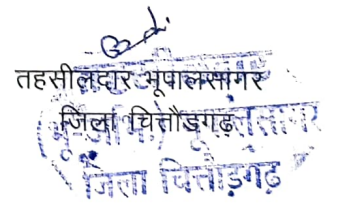 तहसीलदार भूपालसागर
जिला चित्तौडगढ़
(भू.अ.) भूपालसागर
जिला चित्तौड़गढ़